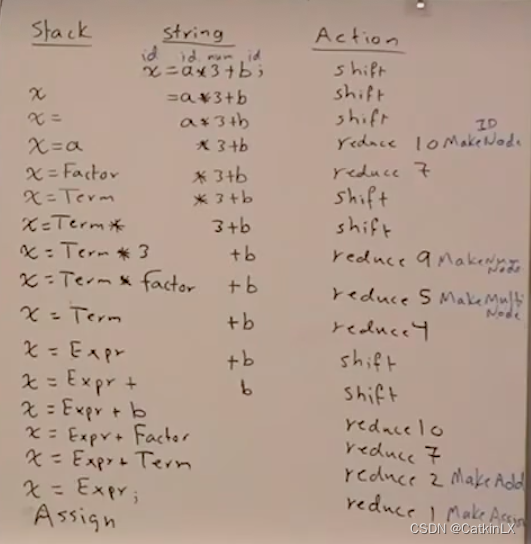 Stack String Action
id id num id
x = a * 3 + b ; shift
x = a * 3 + b shift
x = a * 3 + b shift
ID
x = a * 3 + b reduce 10 MakeNode
x = Factor * 3 + b reduce 7
x = Term * 3 + b shift
x = Term * 3 + b shift
x = Term * 3 + b reduce 9 MakeNum
Node
x = Term * factor + b reduce 5 MakeMulti
Node
x = Term + b reduce 4
x = Expr + b shift
x = Expr + b shift
x = Expr + b reduce 10
x = Expr + Factor reduce 7
x = Expr + Term reduce 2 MakeAdd
x = Expr ; reduce 1 MakeAssin
Assign
CSDN @CatkinLX